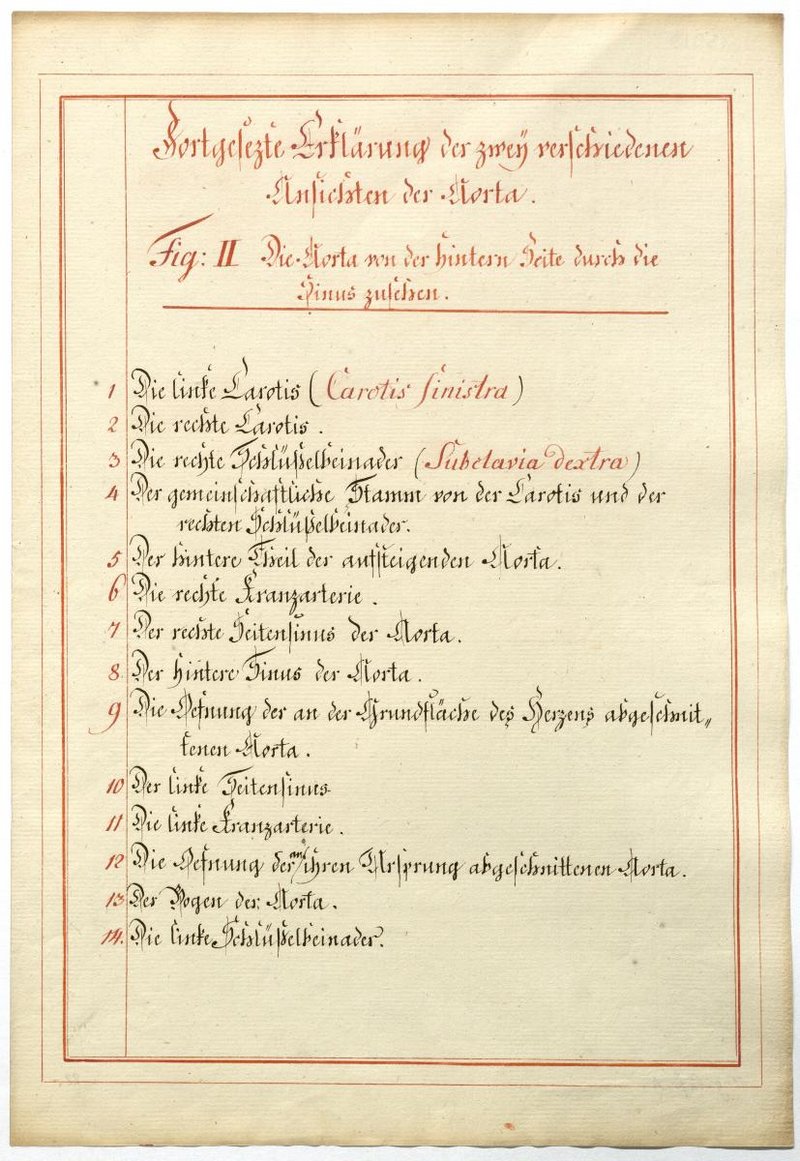 Fortgesezte Erklärung der zwey verschiedenen
Ansichten der Aorta.
Fig: II Die Aorta von der hintern Seite durch die
Sinus zusehen.
1 Die linke Carotis (Carotis sinistra)
2 Die rechte Carotis.
3 Die rechte Schlüßelbeinader (Subclavia dextra)
4 Der gemeinschaftliche Stamm von der Carotis und der
rechten Schlüßelbeinader.
5 Der hintere Theil der aufsteigenden Aorta.
6 Die rechte Kranzarterie.
7 Der rechte Seitensinus der Aorta.
8. Der hintere Sinus der Aorta.
9 Die Oefnung der an der Grundfläche des Herzens abgeschnit„
tenen Aorta.
10 Der linke Seitensinus
11 Die linke Kranzarterie.
12 Die Oefnung der an ihren Ursprung abgeschnittenen Aorta.
13 Der Bogen der Aorta.
14. Die linke Schlüßelbeinader.